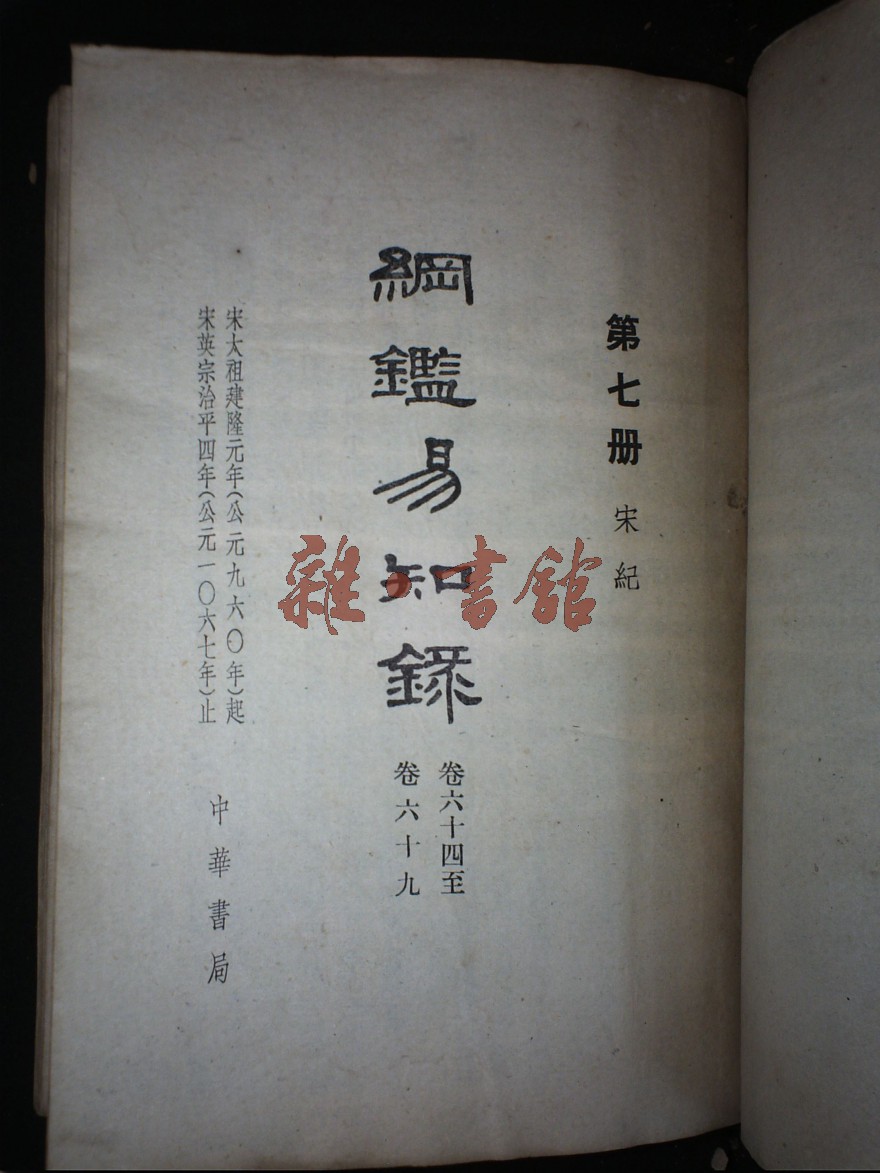 第七册 宋紀
綱鑑易知錄
卷六十四至
卷六十九
宋太祖建隆元年(公元九六〇年)起
宋英宗治平四年(公元一〇六七年)止
中華書局
雜·書館